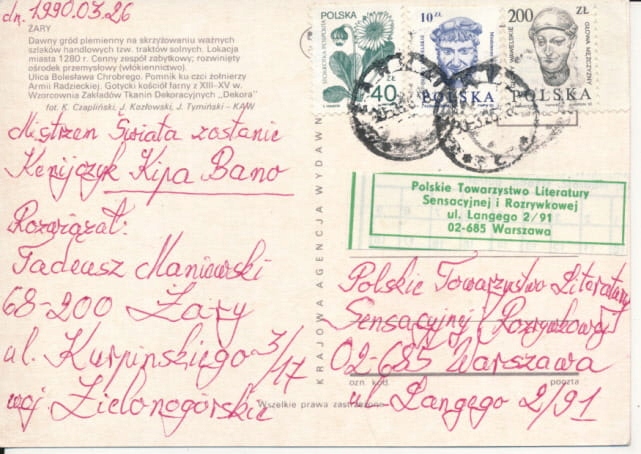 dn. 1990.03.26
ŻARY
Dawny gród plemienny na skrzyżowaniu ważnych
szlaków handlowych tzw. traktów solnych. Lokacja
miasta 1280 r. Cenny zespół zabytkowy; rozwinięty
ośrodek przemysłowy (włókiennictwo).
Ulica Bolesława Chrobrego. Pomnik ku czci żołnierzy
Armii Radzieckiej. Gotycki kościół farny z XIII-XV w.
Wzorcownia Zakładów Tkanin Dekoracyjnych „Dekora"
fot. K. Czapliński, J. Kozłowski, J. Tymiński – KAW
Mistrzem Świata zostanie
Kenijczyk Kipa Bano
Rozwiązał:
Tadeusz Maniewski
68-200 Żary
ul. Kurpińskiego 3/17
woj Zielonogórskie
KRAJOWA AGENCJA WYDAWN
POLSKA
40 ZŁ
10 ZŁ
POLSKA
200 ZŁ
WAWELSKIE
GŁOWA MĘŻCZYZNY
POLSKA
Polskie Towarzystwo Literatury
Sensacyjnej i Rozrywkowej
ul. Langego 2/91
02-685 Warszawa
Polskie Towarzystwo Literatury
Sensacyjnej i Rozrywkowej
02-685 Warszawa
ozn. kod. poczta
ul Langego 2/91
Wszelkie prawa zastrzeżone